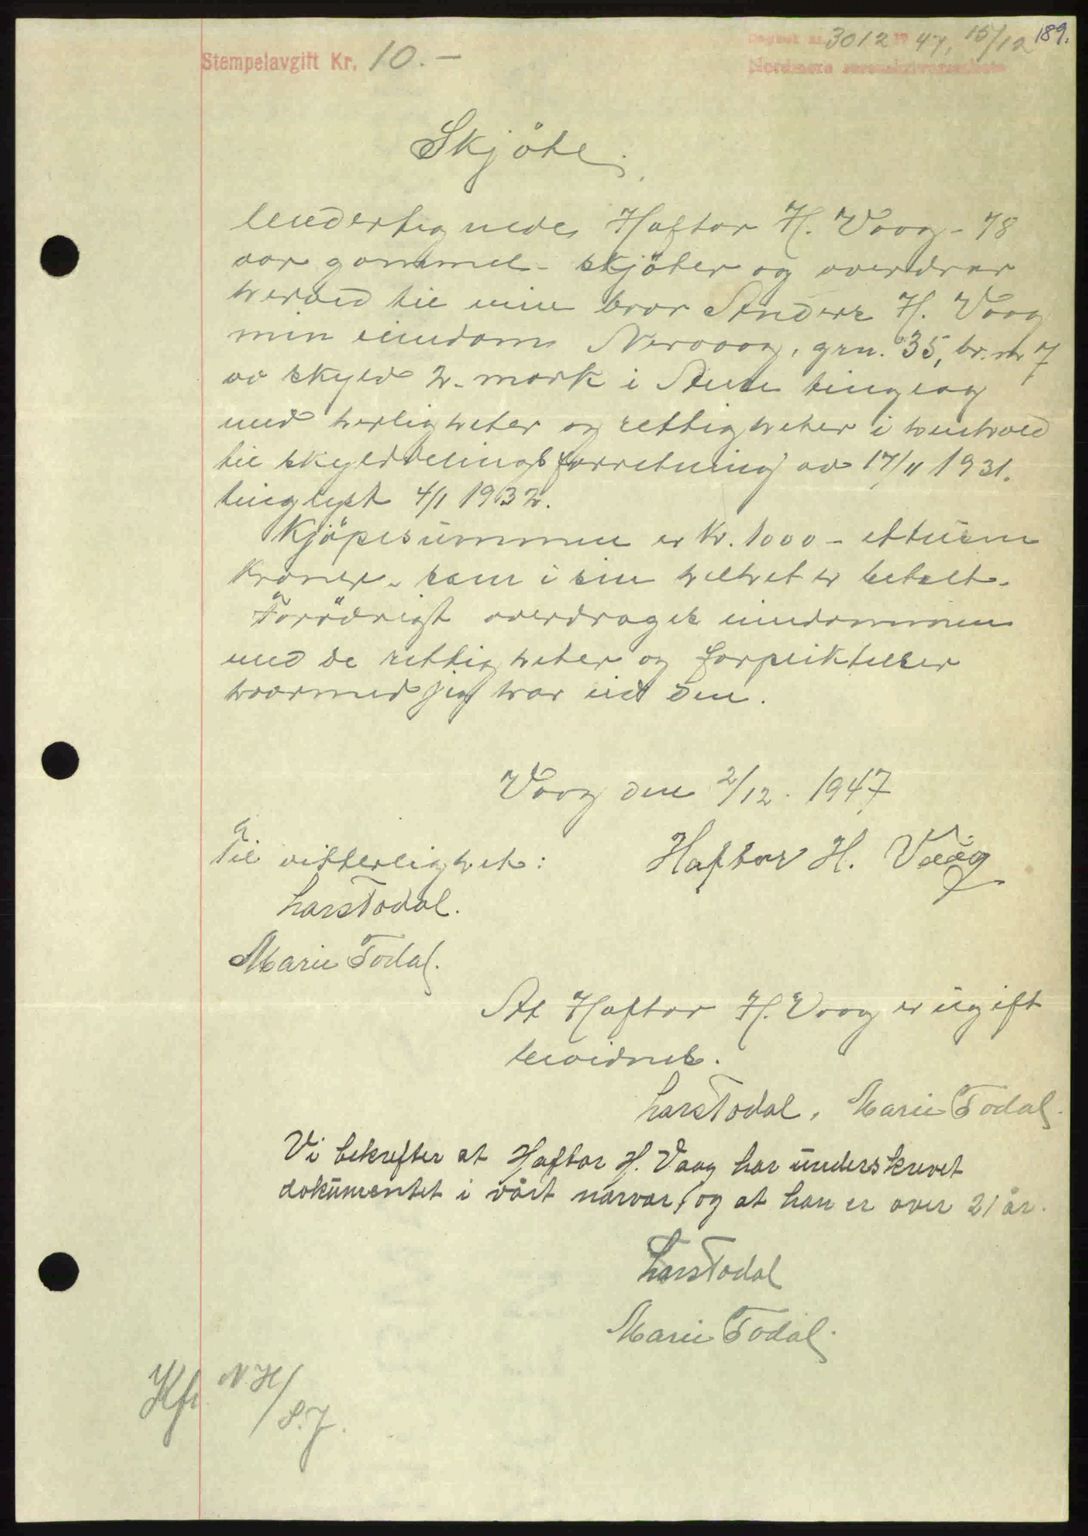 189.
Dagbok nr. 3012 19 47, 15/12
Stempelavgift Kr. 10.-
Nordmøre sorenskriverembete
Skjöte.
Undertegnede, Haftor H. Vaag - 78
aar gammel - skjöter og overdrar
herved til min bror Anders H. Vaag
min eiendom Nervaag, grn. 35, br. nr 7
av skyld 2 - mark i Stem tinglag
med herligheter og rettigheter i henhold
til skylddelingsforretning av 17/11 1931.
tinglyst 4/1 1932.
Kjöpesummen er Kr. 1000 - ettusen
Kroner - som i sin helhet er betalt.
Forövrigt overdrages eiendommen
med de rettigheter og forpliktelser
hvormed jeg har eid den.
Vaag den 2/12. 1947
Til vitterlighet: Haftor H. Vaag
Lars Todal.
Marie Todal.
At Haftor H. Vaag er ugift
bevidnes.
Lars Todal. Marie Todal.
Vi bekrefter at Haftor H. Vaag har underskrevet
dokumentet i vårt nærvær, og at han er over 21 år.
Lars Todal
Marie Todal.
Kfr NH/S.J.